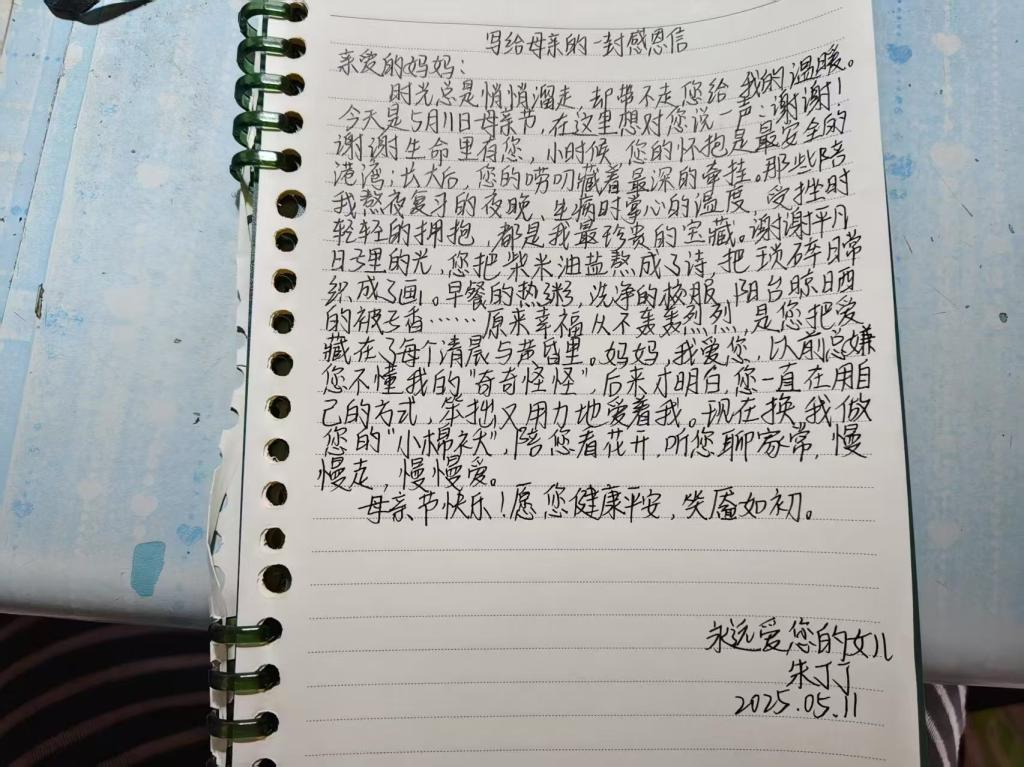 写给母亲的一封感恩信
亲爱的妈妈：
时光总是悄悄溜走，却带不走您给我的温暖。
今天是5月11日母亲节，在这里想对您说一声：谢谢！
谢谢生命里有您，小时候，您的怀抱是最安全的
港湾；长大后，您的唠叨藏着最深的牵挂。那些陪
我熬夜复习的夜晚、生病时掌心的温度，受挫时
轻轻的拥抱，都是我最珍贵的宝藏。谢谢平凡
日子里的光，您把柴米油盐熬成了诗，把琐碎日常
织成了画。早餐的热粥，洗净的校服，阳台晾晒
的被子香……原来幸福从不轰轰烈烈，是您把爱
藏在了每个清晨与黄昏里。妈妈，我爱您，以前总嫌
您不懂我的“奇奇怪怪”，后来才明白，您一直在用自
己的方式，笨拙又用力地爱着我。现在换我做
您的“小棉袄”，陪您看花开，听您聊家常，慢
慢走，慢慢爱。
母亲节快乐！愿您健康平安，笑靥如初。
永远爱您的女儿
朱丁丁
2025.05.11